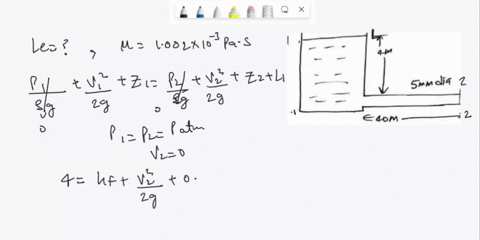 Le=? , μ = 1.002×10⁻³ Pa·S
P₁/ρg + V₁²/2g + Z₁ = P₂/ρg + V₂²/2g + Z₂ + L
0 0
P₁ = P₂ = Patm
V₂ = 0
4 = hf + V₂²/2g + 0.
1.
4M
5mm dia 2
.1
40M
.2